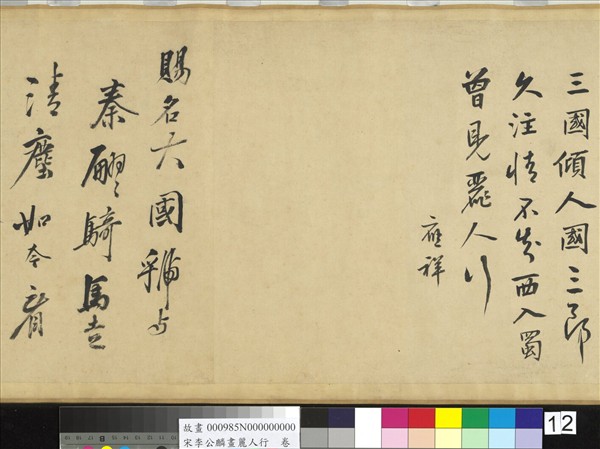 三國傾人國三郎
久注情不知西入蜀
曾見麗人行
應祥
賜名大國虢与
秦翩〻騎馬去
清塵如今
故畫 000985N000000000
宋李公麟畫麗人行 卷
12